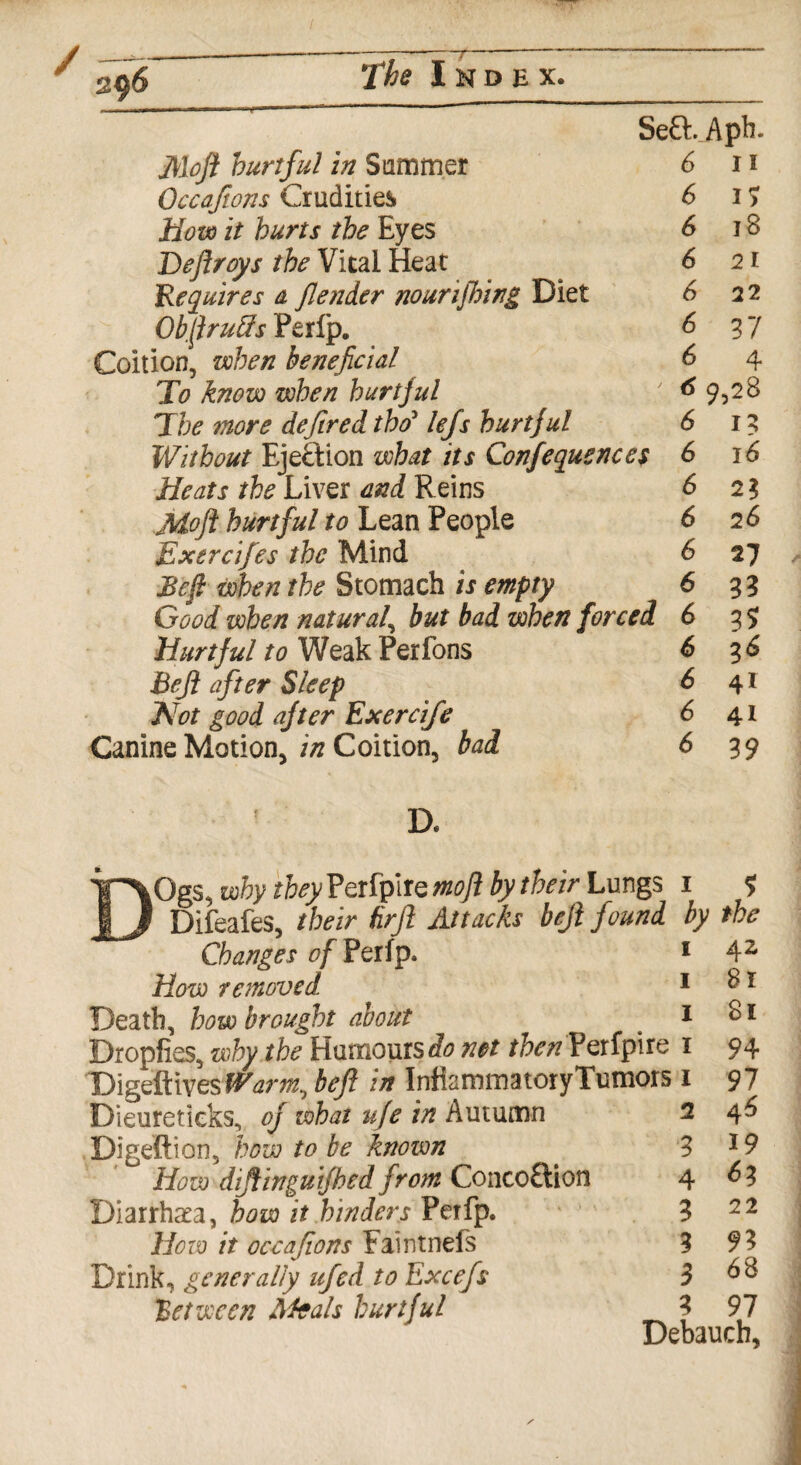 296 The INDEX.
Sect. Aph.
Moſt hurtful in Summer 6 11
Occaſions Crudities 6 15
How it hurts the Eyes 6 18
Deſtroys the Vital Heat 6 21
Requires a ſlender nouriſhing Diet 6 22
Obſtructs Perſp. 6 37
Coition, when beneficial 6 4
To know when hurtful 6 9,28
The more deſired tho' leſs hurtful 6 13
Without Ejection what its Conſequences 6 16
Heats the Liver and Reins 6 23
Moſt hurtful to Lean People 6 26
Exerciſes the Mind 6 27
Beſt when the Stomach is empty 6 33
Good when natural, but bad when forced 6 35
Hurtful to Weak Perſons 6 36
Beſt after Sleep 6 41
Not good after Exerciſe 6 41
Canine Motion, in Coition, bad 6 39
D.
DOgs, why they Perſpire moſt by their Lungs 1 5
Diſeaſes, their firſt Attacks beſt found by the
Changes of Perſp. 1 42
How removed 1 81
Death, how brought about 1 81
Dropſies, why the Humours do not then Perſpire 1 94
Digeſtives Warm, beſt in Inflammatory Tumors 1 97
Dieureticks, of what uſe in Autumn 2 46
Digeſtion, how to be known 3 19
How diſtinguiſhed from Concoction 4 63
Diarrhæa, how it hinders Perſp. 3 22
How it occaſions Faintneſs 3 93
Drink, generally uſed to Exceſs 3 68
Between Meals hurtful 3 97
Debauch,